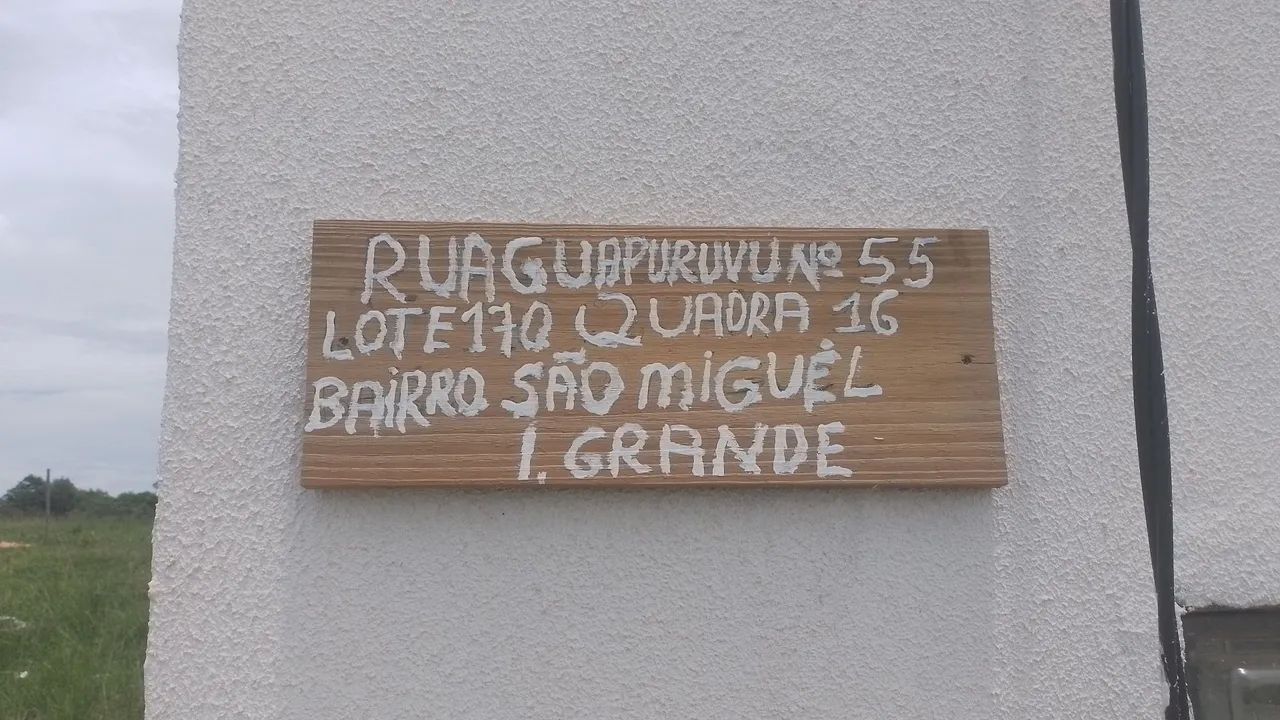 RUA GUAPURUVU Nº 55
LOTE 170 QUADRA 16
BAIRRO SÃO MIGUÉL
I. GRANDE